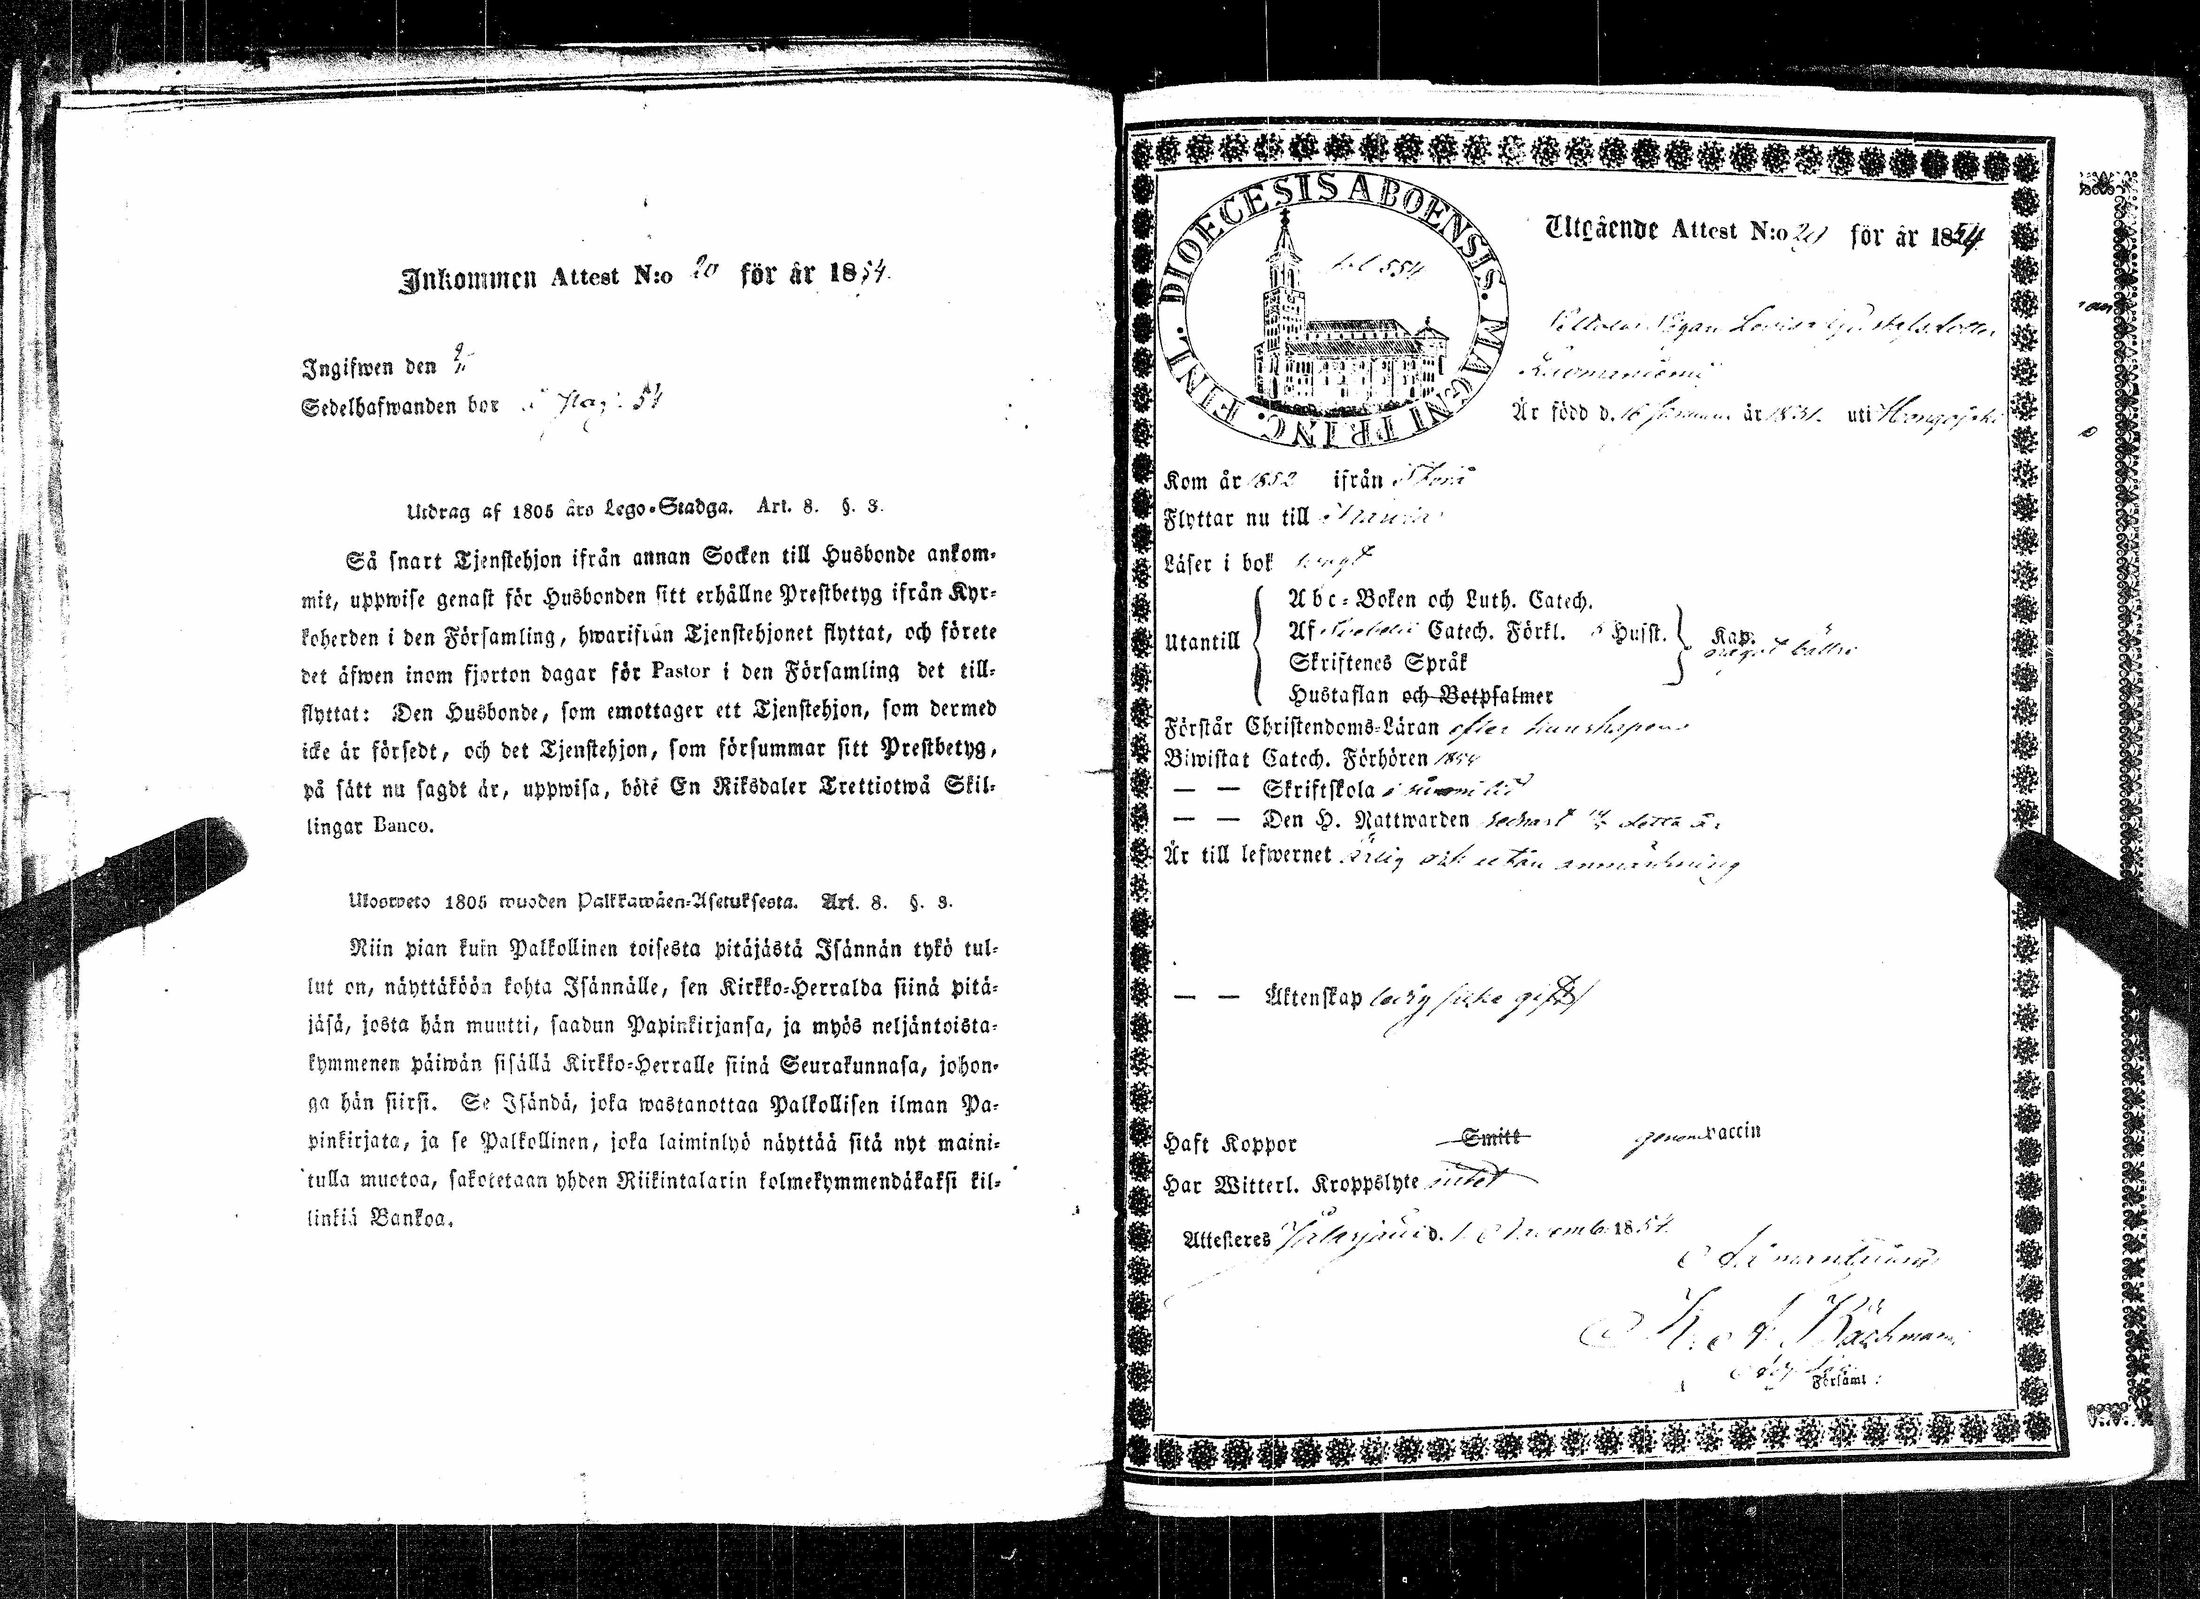 Inkommen Attest N:o 20 för år 1854.
Ingifwen den
Sedelhafwanden bor 54
Utdrag af 1805 års Lego-Stadga. Art. 8. §. 3.
Så snart Tjenstehjon ifrån annan Socken till Husbonde ankom-
mit, uppwise genast för Husbonden sitt erhållne Prestbetyg ifrån Kyr-
koherden i den Församling, hwarifrån Tjenstehjonet flyttat, och förete
det äfwen inom fjorton dagar för Pastor i den Församling det till-
flyttat: Den Husbonde, som emottager ett Tjenstehjon, som dermed
icke är försedt, och det Tjenstehjon, som försummar sitt Prestbetyg,
på sätt nu sagdt är, uppwisa, böte En Riksdaler Trettiotwå Skil-
lingar Banco.
Ulosweto 1805 wuoden Palkkawäen-Asetuksesta. Art. 8. §. 3.
Niin pian kuin Palkollinen toisesta pitäjästä Isännän tykö tul-
lut on, näyttäköön kohta Isännälle, sen Kirkko-Herralda siinä pitä-
jäsä, josta hän muutti, saadun Papinkirjansa, ja myös neljäntoista-
kymmenen päiwän sisällä Kirkko-Herralle siinä Seurakunnasa, johon-
ga hän siirsi. Se Isändä, joka wastanottaa Palkollisen ilman Pa-
pinkirjata, ja se Palkollinen, joka laiminlyö näyttää sitä nyt maini-
tulla muotoa, sakotetaan yhden Riikintalarin kolmekymmendäkaksi kil-
linkiä Bankoa.
DIOECESIS ABOENSIS. MAGNI PRINC. FINL.
554
Utgående Attest N:o 20 för år 1854
Pigan Lovisa Gustafsdotter
Är född d. 16 år 1831. uti
Kom år 1852 ifrån
Flyttar nu till
Läser i bok
Utantill
Abc-Boken och Luth. Catech.
Af Catech. Förkl. Husst.
Skriftenes Språk
Hustaflan och Botpsalmer
Kap.
något bättre
Förstår Christendoms-Läran efter kunskapen
Biwistat Catech. Förhören 1854
— — Skriftskola i sinom tid
— — Den H. Nattwarden senast detta år
Är till lefwernet ärlig och utan anmärkning
— — Äktenskap ledig
Haft Koppor Smitt genom Vaccin
Har Witterl. Kroppslyte intet
Attesteres d. 1 Novemb. 1854.
K. A. Bächman
Församl: